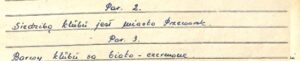 Par. 2.
Siedzibą klubu jest miasto Przeworsk.
Par. 3.
Barwy klubu są biało-czerwone.